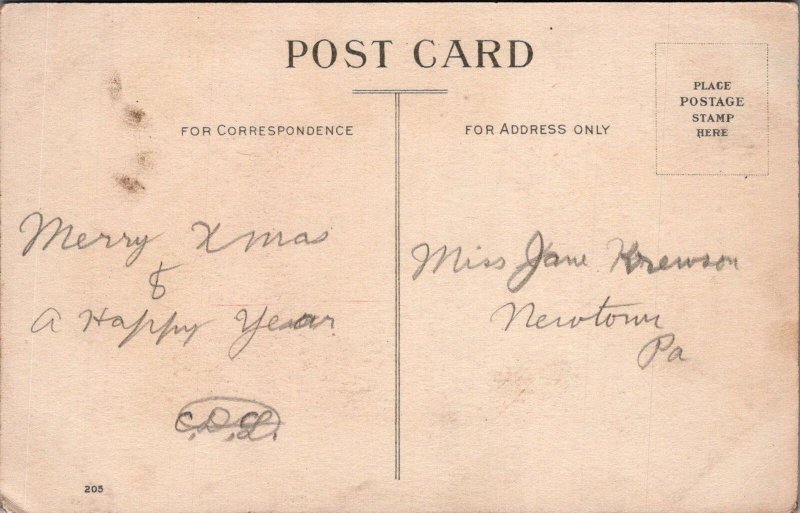 POST CARD
FOR CORRESPONDENCE
Merry Xmas
&
A Happy Year
C.D.L.
205
FOR ADDRESS ONLY
PLACE
POSTAGE
STAMP
HERE
Miss Jane Krewson
Newtown
Pa